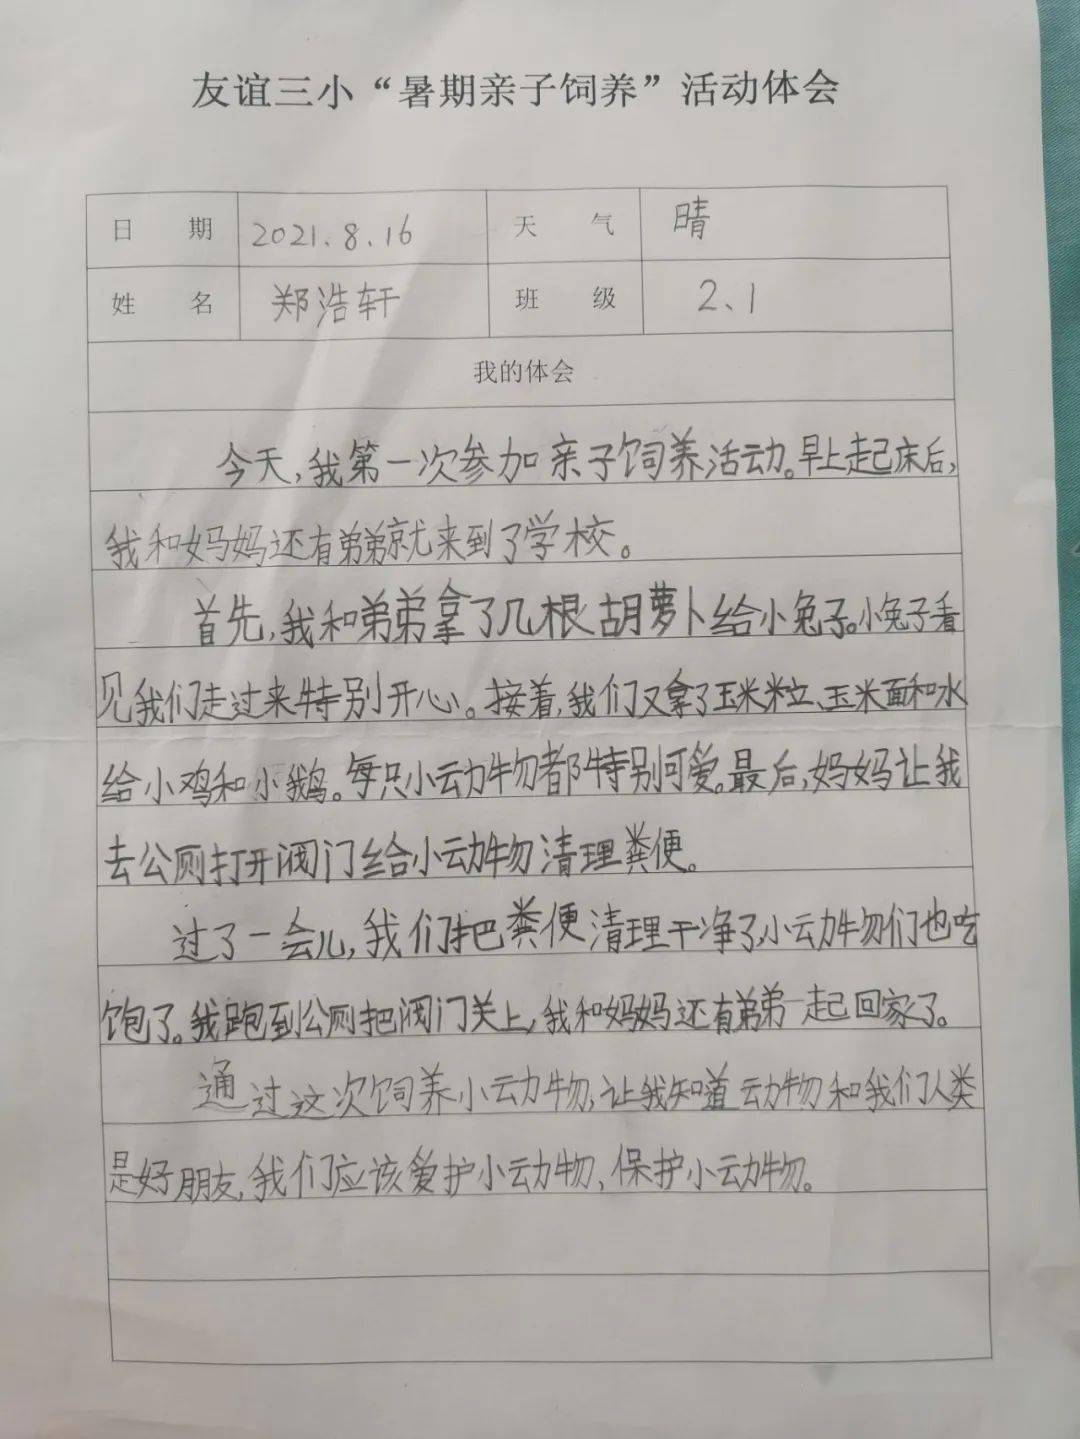 友谊三小“暑期亲子饲养”活动体会
日 期 2021.8.16 天 气 晴
姓 名 郑浩轩 班 级 2、1
我的体会
今天,我第一次参加亲子饲养活动。早上起床后,
我和妈妈还有弟弟就来到了学校。
首先,我和弟弟拿了几根胡萝卜给小兔子。小兔子看
见我们走过来特别开心。接着,我们又拿了玉米粒、玉米面和水
给小鸡和小鹅。每只小动物都特别可爱。最后,妈妈让我
去公厕打开阀门给小动物清理粪便。
过了一会儿,我们把粪便清理干净了,小动物们也吃
饱了。我跑到公厕把阀门关上,我和妈妈还有弟弟一起回家了。
通过这次饲养小动物,让我知道动物和我们人类
是好朋友,我们应该爱护小动物、保护小动物。